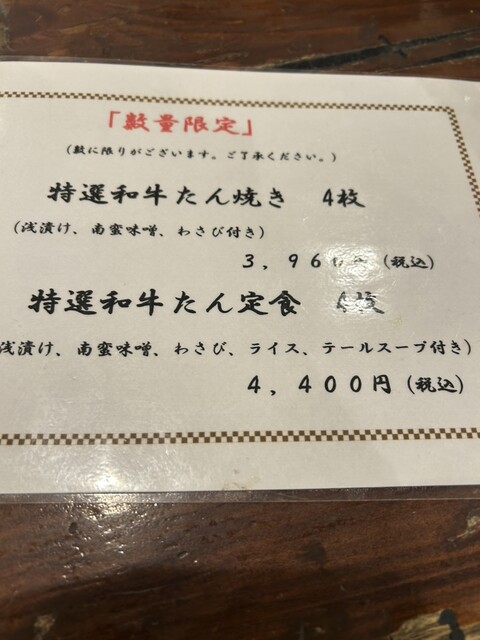 「数量限定」
(数に限りがございます。ご了承ください。)
特選和牛たん焼き 4枚
(浅漬け、南蛮味噌、わさび付き)
3,960円 (税込)
特選和牛たん定食 4枚
浅漬け、南蛮味噌、わさび、ライス、テールスープ付き)
4,400円 (税込)